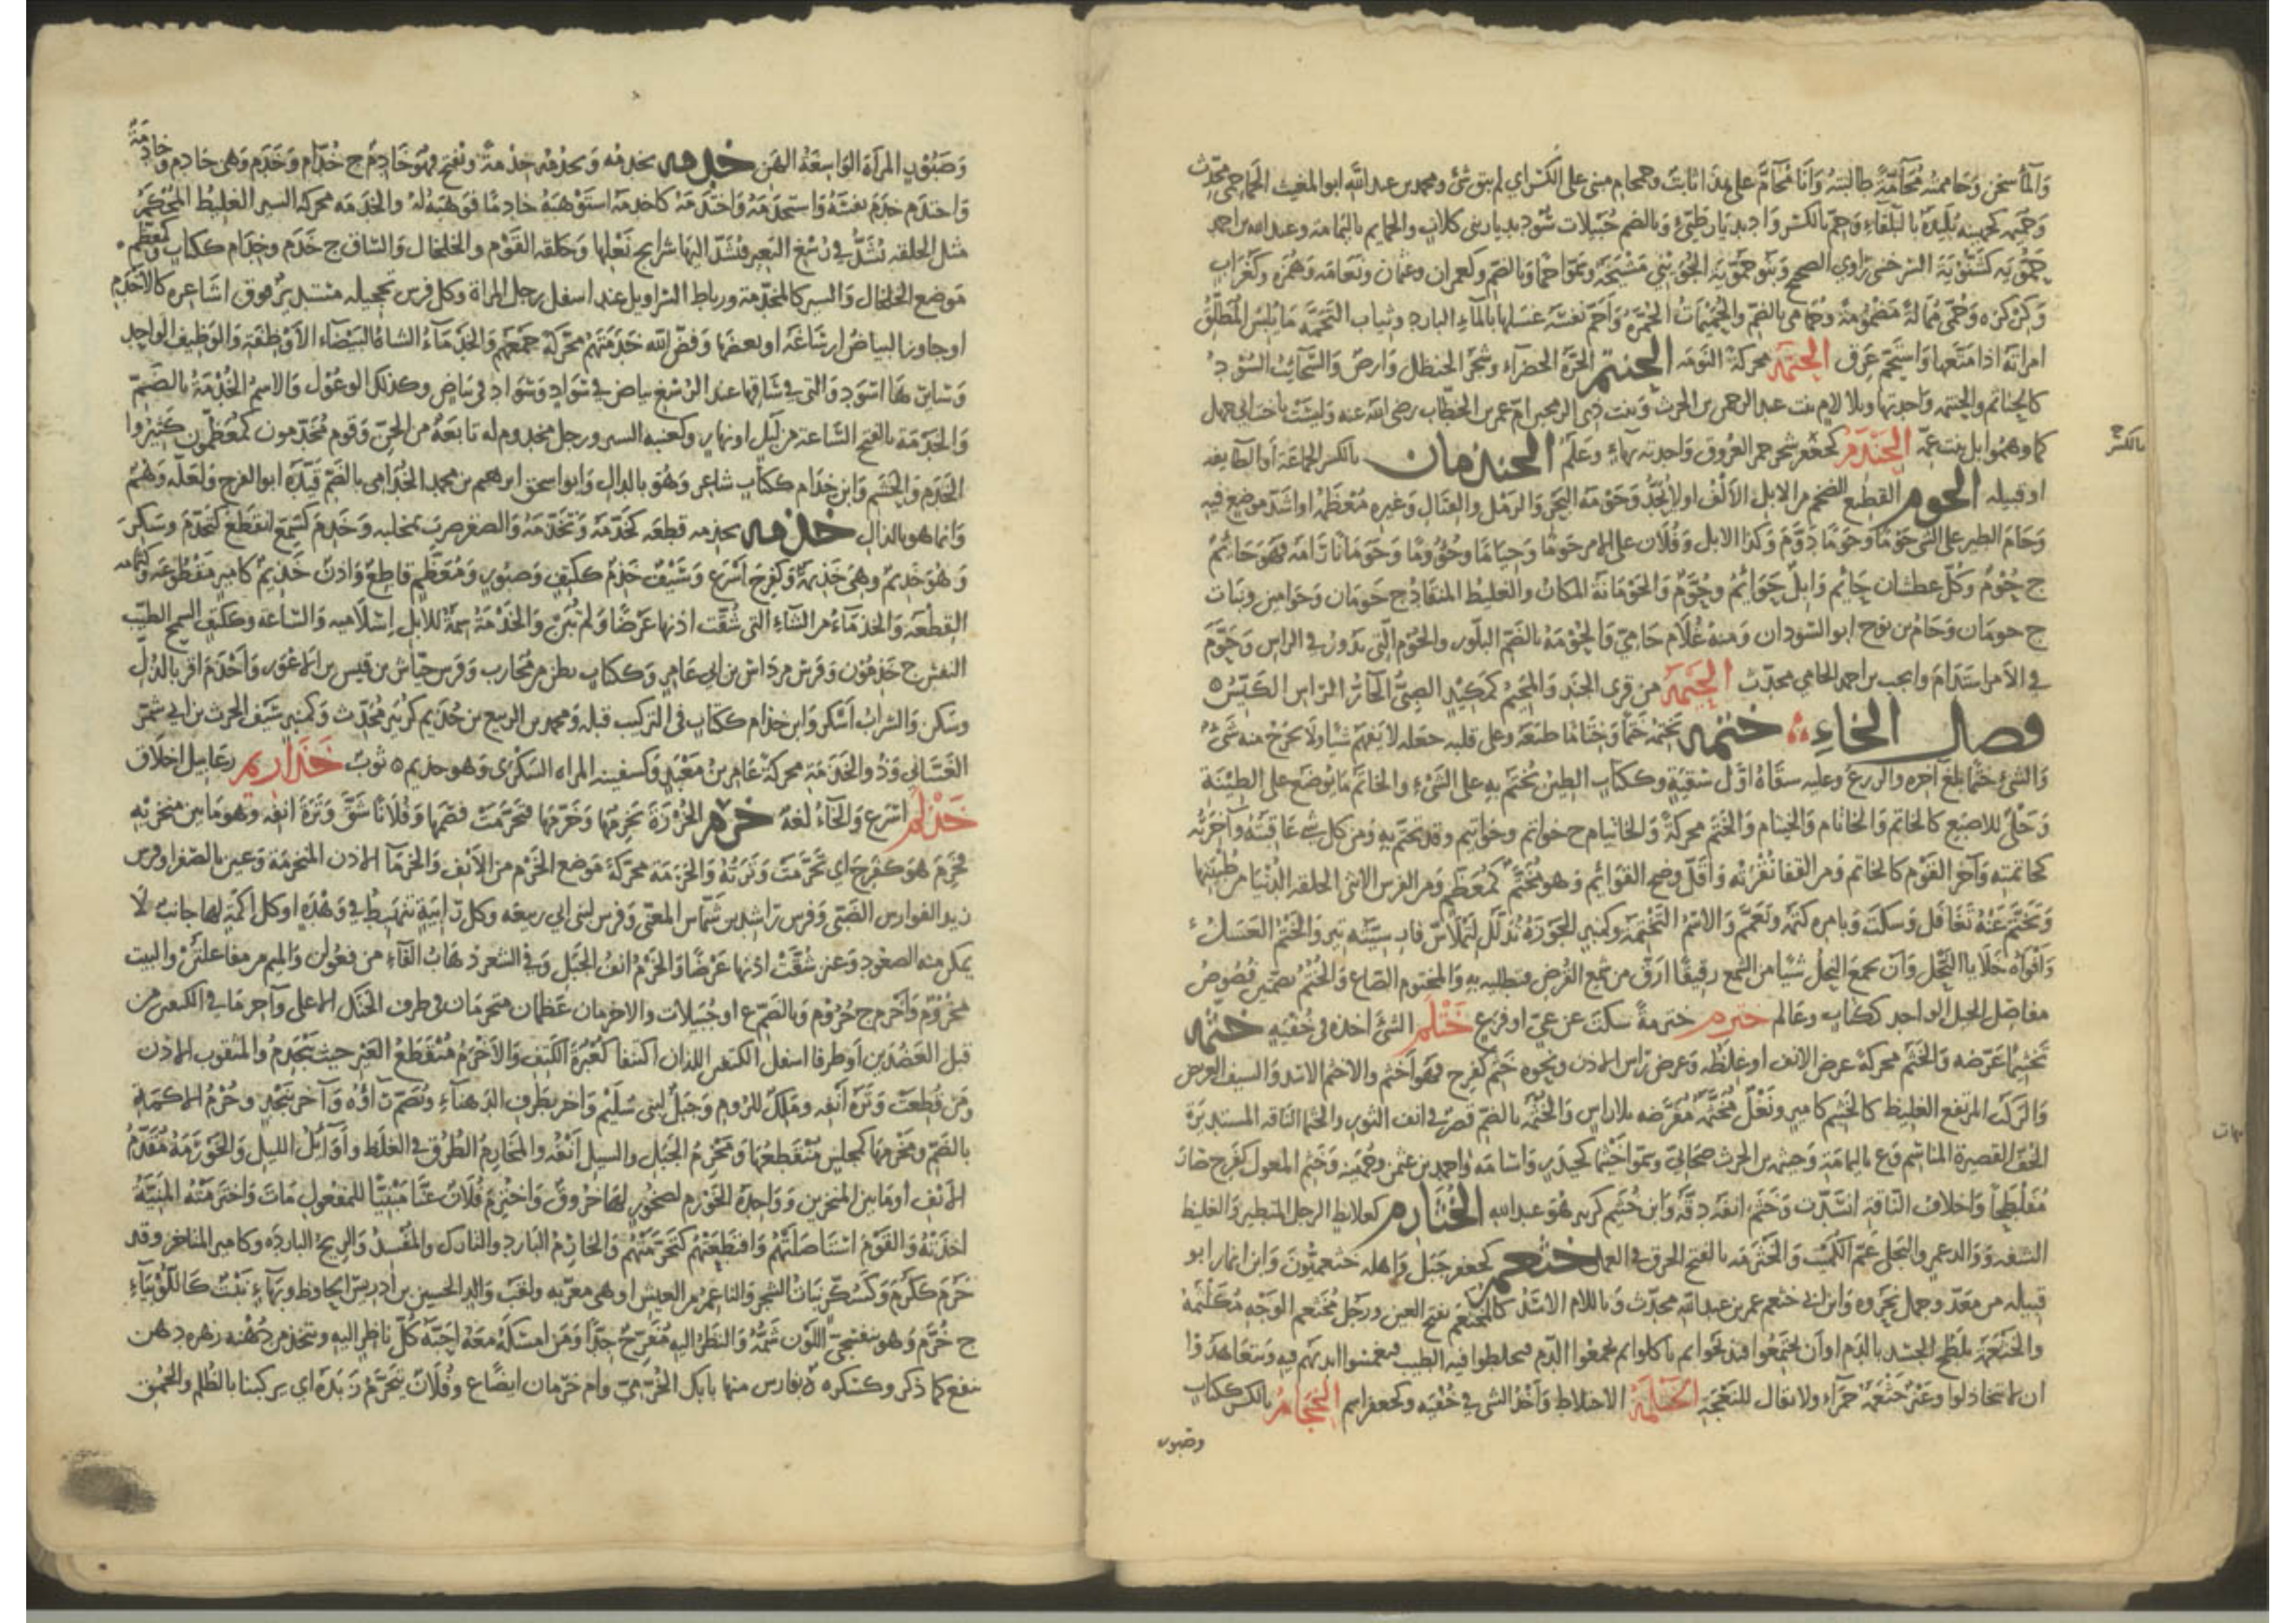 والماء سخن وحاممته محامة طالبته وانا محام على هذا ثابت وحمحام مبني على الكسر اي لم يبق شئ ومحمد بن عبد الله ابو المغيث الحماحمي محدث
وحميمه كجهينه بليدة بالبلقاء وحم بالكسر واد بديار طيئ وبالضم جبيلات سود بديار بني كلاب والحمايم باليمامة وعبد الله بن احمد
حمويه كشبويه السرخسي راوي الصحيح وبنو حمويه الجويني مشيخة وسموا حما وبالضم وكعمران وعثمان ونعامه وهمزه وكغراب
وكركره وحمى ممالة مضمومة وحمامي بالضم والحميمات الحمرة واحم نفسه غسلها بالماء البارد وثياب التحمة ما يلبس المطلق
امراته اذا متعها واستحم عرق الحتمة محركة النومه الحنتم الجرة الخضراء وشجر الحنظل وارض والسحائب السود
كالحناتم والحنتمه واحدتها وبلا لام بنت عبد الرحمن بن الحرث وبنت ذي الرمحين ام عمر بن الخطاب رضي الله عنه وليست باخت ابي جهل
كما وهموا بل بنت عمه الحندم كجعفر شجر حمر العروق واحدته بهاء وعلم الحندمان بالكسر الجماعة او الطايفه
بالكسر صح
او قبيله الحوم القطيع الضخم من الابل الالف او لا يحد وحومة البحر والرمل والقتال وغيره معظمه او اشد موضع فيه
وحام الطير على الشئ حوما وحوما دوم وكذا الابل وفلان على الامر حوما وحياما وحؤوما وحومانا رامه فهو حائم
ج حوم وكل عطشان حايم وابل حوايم وحوم والحومانة المكان والغليظ المنقاد ج حومان وحوامين ونبات
ج حومان وحام بن نوح ابو السودان ومنه غلام حامي والحومة بالضم البلور والحوم التي تدور في الراس وحوم
في الامر استدام وابجب بن احمد الحامي محدث الحيمة من قرى الجند والمحيم كمكيد الصبي الحار الراس الكيس ه
فصل الخاء ختمه يختمه ختما وختاما طبعه وعلى قلبه جعله لا يفهم شيا ولا يخرج منه شئ
والشئ ختما بلغ اخره والزرع وعليه سقاه اول سقية وككتاب الطين يختم به على الشئ والخاتم ما يوضع على الطينة
وحلي للاصبع كالخاتم والخاتام والخيتام والختم محركة والخاتيام ج خواتم وخواتيم وقد تختم به ومن كل شئ عاقبته وآخرته
كخاتمته وآخر القوم كالخاتم ومن القفا نقرته واقل وضح القوائم وهو مختم كمعظم ومن الفرس الانثى الحلقه الدنيا من طبيتها
وتختم عنه تغافل وسكت وبامره كتمه وتعمم والاسم التختمة وكمنبر الجوزة تدلك لتملاس فارسيته تير والختم العسل
وافواه خلايا النحل وان تجمع النحل شيا من الشمع رقيقا ارق من شمع القرص فتطليه به والمختوم الصاع والختم بضمتين فصوص
مفاصل الخيل الواحد ككتاب وعالم خترم خترمة سكت عن عي او فزع ختلم الشئ اخذه في خفيه خثمه
تخثيما عرضه والخثم محركة عرض الانف او غلظه وعرض راس الاذن ونحوه خثم كفرح فهو اخثم والاخثم الاسد والسيف العريض
والركب المرتفع الغليظ كالخثيم كامير ونعل مخثمة معرضه بلا راس والخثمة بالضم قصر في انف الثور والخثما الناقه المستديرة
الخف القصيرة المناسم وع باليمامة وخيثمه بن الحرث صحابي وسموا خيثما كحيدر واسامه واحمد وعثمن وجهينه وخثم المعول كفرح صار
مفلطحا واخلاف الناقه انسدت وخثم انفه دقه وابن خثيم كزبير هو عبد الله الخثارم كعلابط الرجل المتطير والغليظ
الشفه ووالد عمرو البجلي عم الكميت والخثرمه بالفتح الخرق في العمل خثعم كجعفر جبل واهله خثعميون وابن انمار ابو
قبيله من معد وجمل نحروه وابن ابي خثعم عمر بن عبد الله محدث وباللام الاسد كالمخثعم بفتح العين ورجل مخثعم الوجه مكلثمه
والخثعمة تلطخ الجسد بالدم او ان يجتمعوا فيذبحوا ثم ياكلوا ثم يجمعوا الدم فيخلطوا فيه الطيب فيغمسوا ايديهم فيه ويتعاهدوا
ان لا يتخاذلوا وعنز خثعمة حمراء ولا يقال للنعجة الخثلمة الاختلاط واخذ الشي في خفيه وكجعفر اسم الخجام بالكسر ككتاب
وصبور
وصبور المراة الواسعة الهن خدمه يخدمه ويخدمه خدمة ويفتح فهو خادم ج خدام وخدم وهي خادم وخادمة
واختدم خدم نفسه واستخدمه واختدمه كاخدمه استوهبه خادما فوهبه له والخدمه محركه السير الغليظ المحكم
مثل الحلقه تشد في رسغ البعير فتشد اليها شرايج نعلها وحلقه القوم والخلخال والساق ج خدم وخدام ككتاب وكمعظم
موضع الخلخال والسير كالمخدمة ورباط السراويل عند اسفل رجل المراة وكل فرس تحجيله مستدير فوق اشاعره كالاخدم
او جاوز البياض ارساغه او بعضها وفض الله خدمتهم محركة جمعهم والخدماء الشاة البيضاء الاوظفة والوظيف الواحد
وسايرها اسود والتي في ساقها عند الرسغ بياض في سواد وسواد في بياض وكذلك الوعول والاسم الخدمة بالضم
والخدمة بالفتح الساعة من ليل او نهار وكعنبه السير ورجل مخدوم له تابعة من الجن وقوم مخدمون كمعظمون كثيروا
الخدم والحشم وابن خدام ككتاب شاعر وهو بالدال وابو اسحق ابرهيم بن محمد الخدامي بالضم قيده ابو الفرج ولعله وهم
وانما هو بالذال خذمه يخذمه قطعه كخذمه وتخذمه والصقر ضرب بمخلبه وخذم كسمع انقطع كتخذم وسكر
وهو خذيم وهي خذيمة وكفرح اسرع وسيف خذم ككيف وصبور ومعظم قاطع واذن خذيم كامير مقطوعه وكثمامه
القطعه والخذماء من الشاء التي شقت اذنها عرضا ولم تبن والخذمة سمة للابل اسلاميه والساعة وككتف السمح الطيب
النفس ج خذمون وفرس مرداس بن ابي عامر وككتاب بطن من محارب وفرس حياش بن قيس بن الاعور واخذم اقر بالذل
وسكن والشراب اسكر وابن خذام ككتاب في التركيب قبله ومحمد بن الربيع بن خذيم كزبير محدث وكمنبر سيف الحرث بن ابي شمر
الغساني وذو الخذمة محركة عامر بن معبد وكسفينه المراه السكرى وهو خذيم ه ثوب خذاريم رعابيل اخلاق
خذلم اسرع والحاء لغة خرم الخرزة يخرمها وخرمها فتخرمت فصمها وفلانا شق وترة انفه وهو ما بين منخريه
فخرم هو كفرح اي تخرمت وترته والخرمة محركة موضع الخرم من الانف والخرما الاذن المتخرمة وعين بالصفرا وفرس
زيد الفوارس الضبي وفرس راشد بن شماس المعني وفرس لبني ابي ربيعه وكل رابية تنهبط في وهدة او كل اكمة لها جانب لا
يمكن منه الصعود وعنز شقت اذنها عرضا والخرم انف الجبل وفي الشعر ذهاب الفاء من فعولن والميم من مفاعلتن والبيت
مخروم واخرم ج خروم وبالضم ع او جبيلات والاخرمان عظمان منخرمان في طرف الحنك الاعلى وآخر ما في الكتفين من
قبل العضدين او طرفا اسفل الكتفين اللذان اكتنفا كعبرة الكتف والاخرم منقطع العير حيث ينجدم والمثقوب الاذن
ومن قطعت وترة انفه وملك للروم وجبل لبني سليم واخر بطرف الدهناء وتضم راؤه وآخر بنجد وخرم الاكمة
بالضم ومخرمها كمجلس منقطعها ومخرم الجبل والسيل انفه والمخارم الطرق في الغلظ واوائل الليل والخورمة مقدم
الانف او ما بين المنخرين وواحدة الخورم لصخور لها خروق واخترم فلان عنا مبنيا للمفعول مات واخترمته المنية
اخذته والقوم استاصلتهم واقتطعتهم كتخرمتهم والخارم البارد والتارك والمفسد والريح الباردة وكامير الماخر وقد
خرم ككرم وكسكر نبات الشجر والناعم من العيش او هي معربه ولقب والد الحسين بن ادريس الحافظ وبهاء نبت كاللوبياء
ج خرم وهو بنفسجي اللون شمه والنظر اليه مفرح جدا ومن امسكه معه احبه كل ناظر اليه ويتخذ من زهره دهن
ينفع كما ذكر وكسكره ة بفارس منها بابك الخرمي وام خرمان ايضا ع وفلان يتخرم زبده اي يركبنا بالظلم والحمق